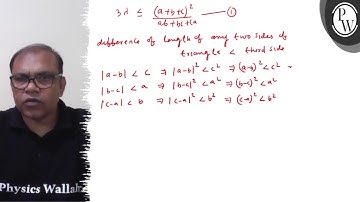 3λ ≤ (a+b+c)² / ab+bc+ca —— ①
difference of length of any two sides of
triangle < third side
|a-b| < c ⇒ |a-b|² < c² ⇒ (a-b)² < c²
|b-c| < a ⇒ |b-c|² < a² ⇒ (b-c)² < a²
|c-a| < b ⇒ |c-a|² < b² ⇒ (c-a)² < b²
PW
Physics Wallah